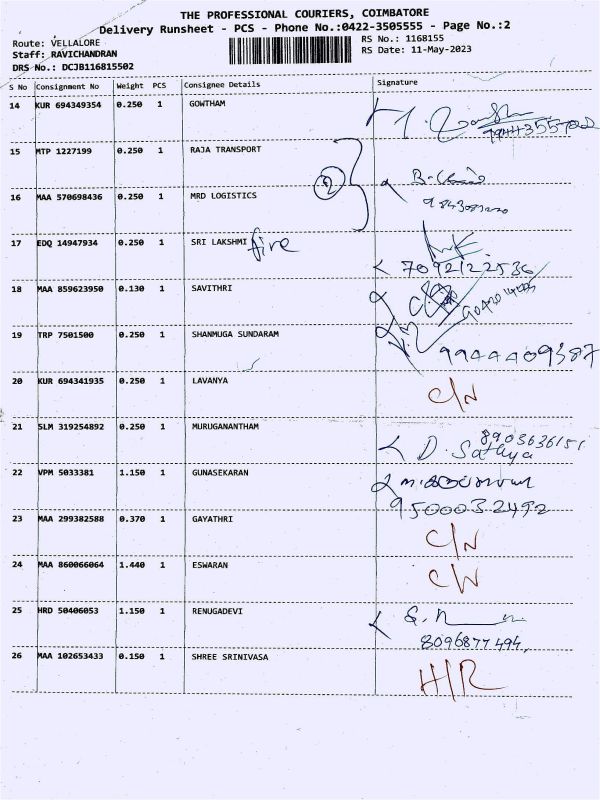 THE PROFESSIONAL COURIERS, COIMBATORE
Delivery Runsheet - PCS - Phone No.:0422-3505555 - Page No.:2
Route: VELLALORE
RS No.: 1168155
Staff: RAVICHANDRAN
RS Date: 11-May-2023
DRS No.: DCJB116815502
S No Consignment No Weight PCS Consignee Details Signature
14 KUR 694349354 0.250 1 GOWTHAM
15 MTP 1227199 0.250 1 RAJA TRANSPORT
16 MAA 570698436 0.250 1 MRD LOGISTICS
2
17 EDQ 14947934 0.250 1 SRI LAKSHMI fire
7092122536
18 MAA 859623950 0.130 1 SAVITHRI
19 TRP 7501500 0.250 1 SHANMUGA SUNDARAM
9944409387
20 KUR 694341935 0.250 1 LAVANYA C/N
21 SLM 319254892 0.250 1 MURUGANANTHAM
8903636151
D. Sathya
22 VPM 5033381 1.150 1 GUNASEKARAN
9500032492
23 MAA 299382588 0.370 1 GAYATHRI C/N
24 MAA 860066064 1.440 1 ESWARAN C/N
25 HRD 50406053 1.150 1 RENUGADEVI
8096877494
26 MAA 102653433 0.150 1 SHREE SRINIVASA H/R